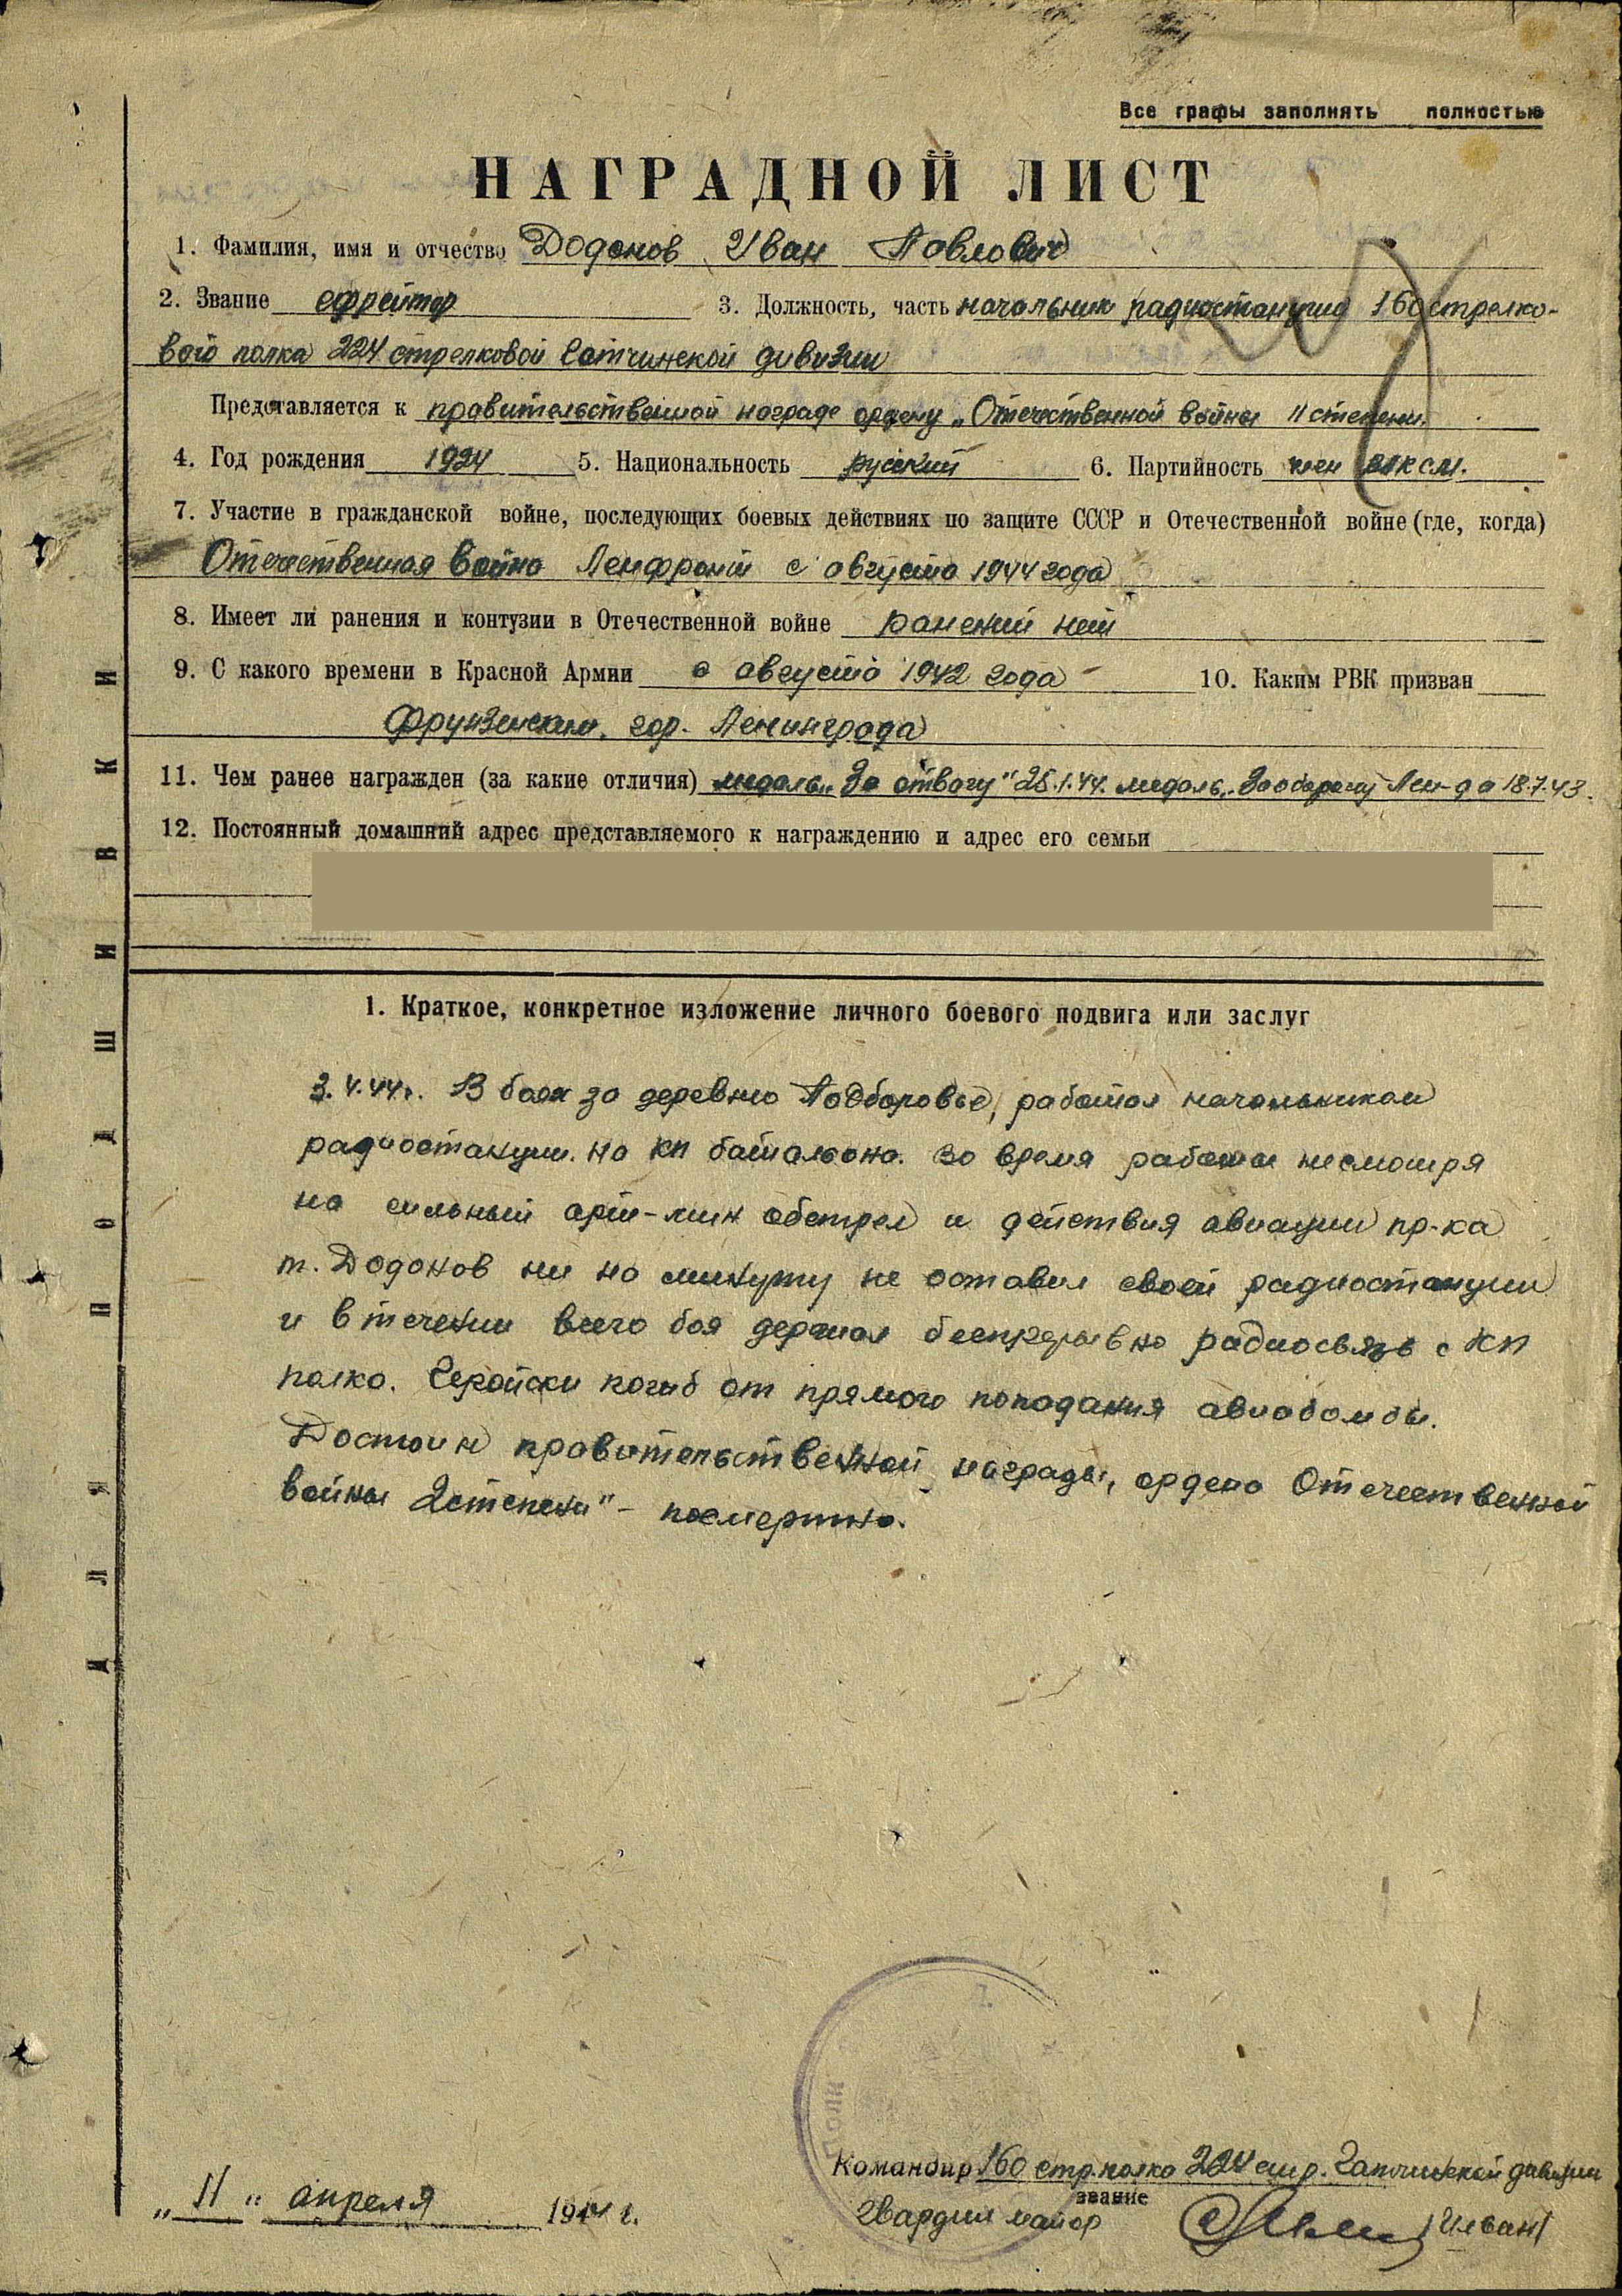 Все графы заполнять полностью
НАГРАДНОЙ ЛИСТ
1. Фамилия, имя и отчество Додонов Иван Павлович
2. Звание ефрейтор 3. Должность, часть начальник радиостанции 160 стрелко-
вого полка 224 стрелковой Гатчинской дивизии
Представляется к правительственной награде ордену „Отечественной войны II степени.
4. Год рождения 1924 5. Национальность русский 6. Партийность член ВЛКСМ.
7. Участие в гражданской войне, последующих боевых действиях по защите СССР и Отечественной войне (где, когда)
Отечественная война Ленфронт с августа 1944 года
8. Имеет ли ранения и контузии в Отечественной войне ранений нет
9. С какого времени в Красной Армии с августа 1942 года 10. Каким РВК призван
Фрунзенским. гор. Ленинграда
11. Чем ранее награжден (за какие отличия) медаль „За отвагу" 25.1.44. медаль „За оборону Лен-да 18.7.43.
12. Постоянный домашний адрес представляемого к награждению и адрес его семьи
1. Краткое, конкретное изложение личного боевого подвига или заслуг
3.4.44г. В боях за деревню Подборовье, работал начальником
радиостанции на КП батальона. Во время работы несмотря
на сильный арт-мин обстрел и действия авиации пр-ка
т. Додонов ни на минуту не оставил своей радиостанции
и в течении всего боя держал беспрерывно радиосвязь с КП
полка. Геройски погиб от прямого попадания авиабомбы.
Достоин правительственной награды, ордена Отечественной
войны 2 степени" – посмертно.
Командир 160 стр. полка 224 стр. Гатчинской дивизии
звание
„11" апреля 1944 г.
Гвардии майор
ДЛЯ ПОДШИВКИ